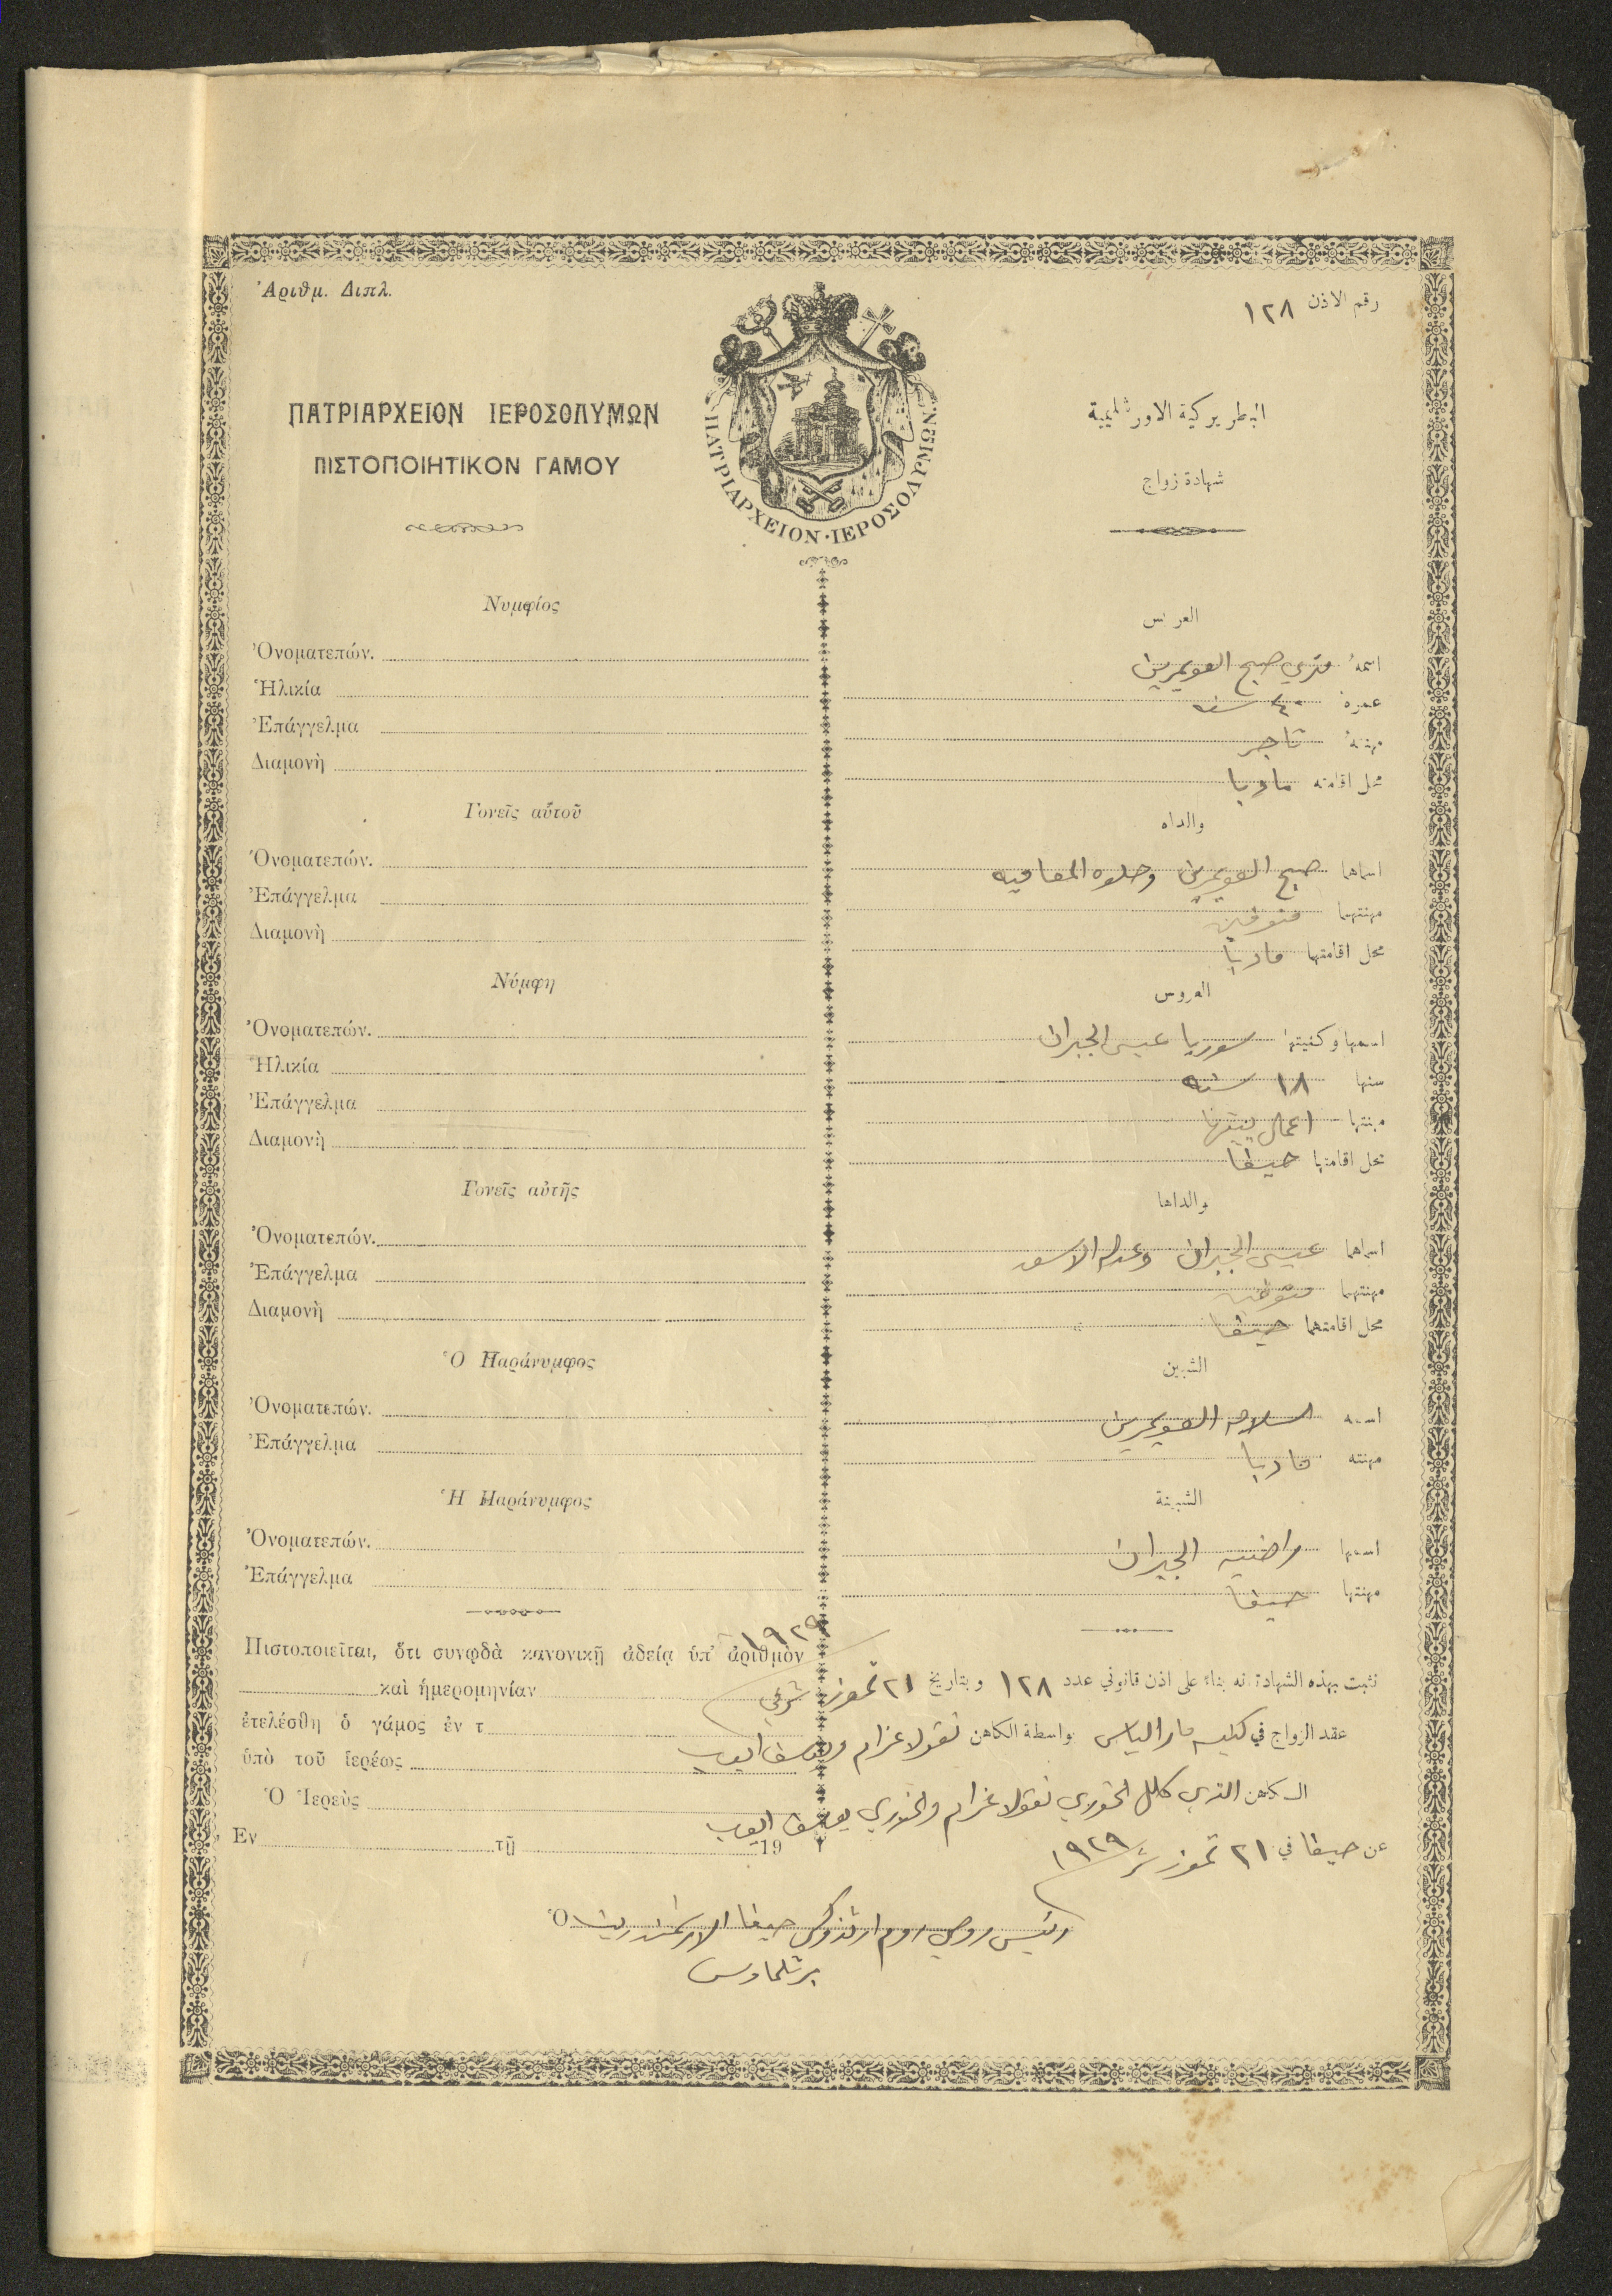 Ἀριθμ. Διπλ.
رقم الاذن ١٢٨
ΠΑΤΡΙΑΡΧΕΙΟΝ ΙΕΡΟΣΟΛΥΜΩΝ
البطريركية الاورشليمية
ΠΙΣΤΟΠΟΙΗΤΙΚΟΝ ΓΑΜΟΥ
شهادة زواج
ΠΑΤΡΙΑΡΧΕΙΟΝ·ΙΕΡΟΣΟΛΥΜΩΝ
Νυμφίος
العريس
Ὀνοματεπών.
اسمهُ متري صبح العويمرين
Ἡλικία
عمره ٤٠ سنه
Ἐπάγγελμα
مهنتهُ تاجر
Διαμονὴ
محل اقامته مادبا
Γονεῖς αὐτοῦ
والداه
Ὀνοματεπών.
اسماهما صبح العويمرين وحلوه المعافيه
Ἐπάγγελμα
مهنتهما متوفين
Διαμονὴ
محل اقامتهما مادبا
Νύμφη
العروس
Ὀνοματεπών.
اسمها وكنيتها سوريا عيسى الجبران
Ἡλικία
سنها ١٨ سنه
Ἐπάγγελμα
مهنتها اعمال بيتها
Διαμονὴ
محل اقامتها حيفا
Γονεῖς αὐτῆς
والداها
Ὀνοματεπών.
اسماهما عيسى الجبران الاسعد
Ἐπάγγελμα
مهنتهما
Διαμονὴ
محل اقامتهما حيفا
Ὁ Παράνυμφος
الشبين
Ὀνοματεπών.
اسمه سلامه العويمرين
Ἐπάγγελμα
مهنته مادبا
Ἡ Παράνυμφος
الشبينة
Ὀνοματεπών.
اسمها راضيه الجبران
Ἐπάγγελμα
مهنتها حيفا
Πιστοποιεῖται, ὅτι συνῳδὰ κανονικῇ ἀδείᾳ ὑπ' ἀριθμὸν
καὶ ἡμερομηνίαν
ἐτελέσθη ὁ γάμος ἐν τ
ὑπὸ τοῦ ἱερέως
Ὁ Ἱερεὺς
Ἐν τῇ 19
نثبت بهذه الشهادة انه بناءً على اذن قانوني عدد ١٢٨ وبتاريخ ٢١ تموز شرقي ١٩٢٩
عقد الزواج في كنيسه مار الياس بواسطة الكاهن نقولا عزام ويوسف ايوب
الكاهن الذي كلل الخوري نقولا عزام والخوري يوسف ايوب
عن حيفا في ٢١ تموز ش ١٩٢٩
Ὁ
رئيس روحي روم ارثذوكس حيفا الارشمندريت
برثلماوس